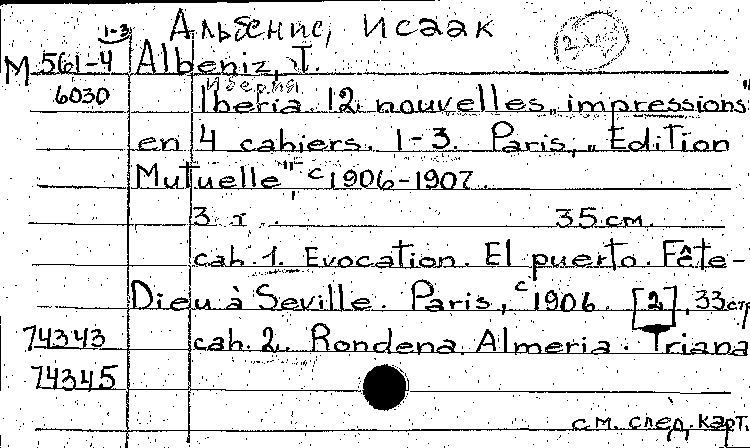 Альбенис, Исаак
1-3
М 561-4 Albeniz, I.
Иберия
6030 Iberia. 12 nouvelles „impressions"
en 4 cahiers. 1-3. Paris, „Edition
Mutuelle", c 1906-1907.
3 т. 35 см.
cah. 1. Evocation. El puerto. Fête-
Dieu à Seville. Paris, c 1906. [2], 33 стр
74343 cah. 2. Rondena. Almeria. Triana
74345
см. след. карт.